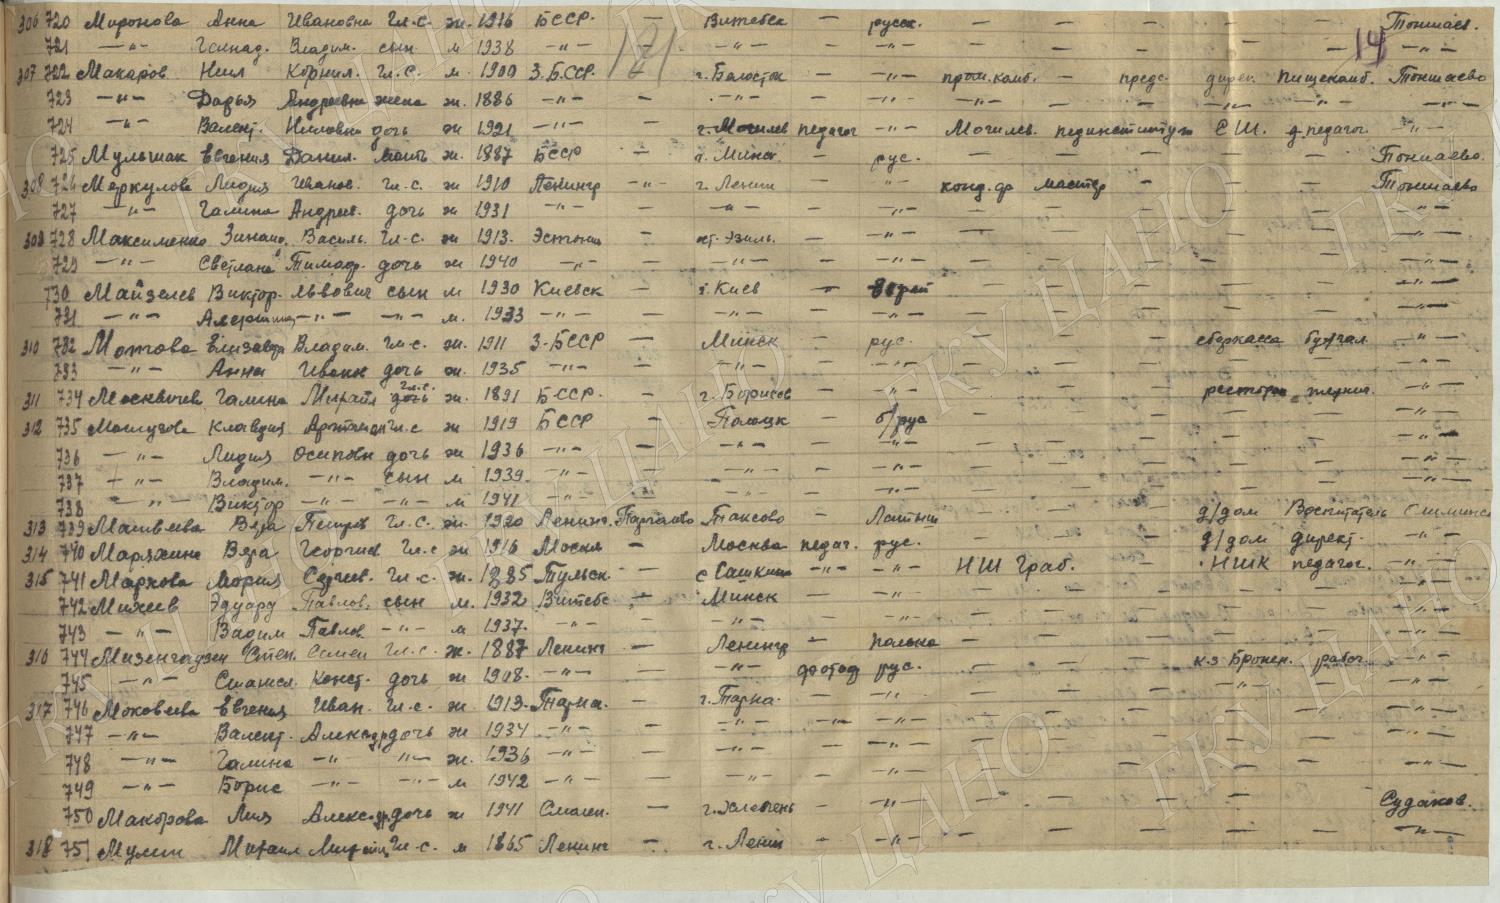 306 720 Миронова Анна Ивановна гл.с. ж. 1916 БССР. — Витебск — русск. — — — — — Тоншаев.
721 —"— Геннад. Владим. сын м 1938 —"— — —"— — —"— — — — — — —"—
14
307 722 Макаров Нил Корнил. гл.с. м. 1900 З.БССР. — г. Белосток — —"— пром.комб. — предс. дирек. пищекомб. Тоншаево
723 —"— Дарья Андреевна жена ж. 1886 —"— — —"— — —"— —"— — — —"— —"— —"—
724 —"— Валент. Ниловна дочь ж 1921 —"— — г. Могилев педагог —"— Могилев. пединститут СШ. педагог. —"—
725 Мульшак Евгения Данил. мать ж. 1887 БССР — г. Минск — рус. — — — — — Тоншаево.
308 726 Меркулова Лидия Иванов. гл.с. ж 1910 Ленингр —"— г. Ленин — —"— конд. ф мастер — — — Тоншаево
727 —"— Галина Андрев. дочь ж 1931 —"— — —"— — —"— — — — — — —"—
309 728 Максименко Зинаид. Василь. гл.с. ж 1913. Эстония — — —"— — — — — — —"—
729 —"— Светлана Тимоф. дочь ж 1940 —"— — —"— — —"— — — — — — —"—
730 Майзелев Виктор. Львович сын м 1930 Киевск — г. Киев — еврей — — — — — —"—
731 —"— —"— —"— м. 1933 —"— — —"— — —"— — — — — — —"—
310 732 Мотова Елизавер Владим. гл.с. ж. 1911 З-БССР — Минск — рус. — — — сберкасса бухгал. —"—
733 —"— Анна Иванн дочь ж. 1935 —"— — —"— — —"— — — — — — —"—
311 734 Москвичев Галина Михайл гл.с. ж. 1891 БССР. — г. Борисов — —"— — — — ресторан —"—
312 735 Машугова Клавдия гл.с ж 1919 БССР — Полоцк — б/рус — — — — — —"—
736 —"— Лидия Осиповн дочь ж 1936 —"— — —"— — —"— — — — — — —"—
737 —"— Владим. —"— сын м 1939. —"— — —"— — —"— — — — — — —"—
738 —"— Виктор —"— —"— м 1941 —"— — —"— — —"— — — — — — —"—
313 739 Матвеева Вера Петров гл.с. ж. 1920 Ленинг. Парголово Токсово — Латыш — — — д/дом Воспитатель
314 740 Марахине Вера Георгиев гл.с ж 1916 Москва — Москва педаг. рус. — — — д/дом директ. —"—
315 741 Мархова Мария Сергеев. гл.с. ж. 1885 Тульск. — с Сашкино —"— —"— НШ Граб. — — НШК педагог. —"—
742 Михеев Эдуард Павлов. сын м. 1932 Витебс — Минск — —"— — — — — — —"—
743 —"— Вадим Павлов —"— м 1937. —"— — —"— — —"— — — — — — —"—
316 744 Мизенгаузен Степ. Семен гл.с. ж. 1887 Ленинг — Ленингр — полька — — — — — —"—
745 —"— Конст. дочь ж 1908. —"— — —"— фотогр рус. — — — к-з Бронен. рабоч. —"—
317 746 Моковеева Евгения Иван. гл.с. ж. 1913. Парна. — г. Парна. — —"— — — — —"— — —"—
747 —"— Валент. Александр дочь ж 1934 —"— — —"— —"— —"— — — — — — —"—
748 —"— Галина —"— —"— ж. 1936 —"— — —"— — —"— — — — — — —"—
749 —"— Борис —"— —"— м 1942 —"— — —"— — —"— — — — — — —"—
750 Макорова Лия Александр. дочь ж 1941 Смолен. — — —"— — — — — — Судаков.
318 751 Мулин Михаил Михайл гл.с. м 1865 Ленинг — г. Ленин — —"— — — — — — —"—
ГКУ ЦАНО